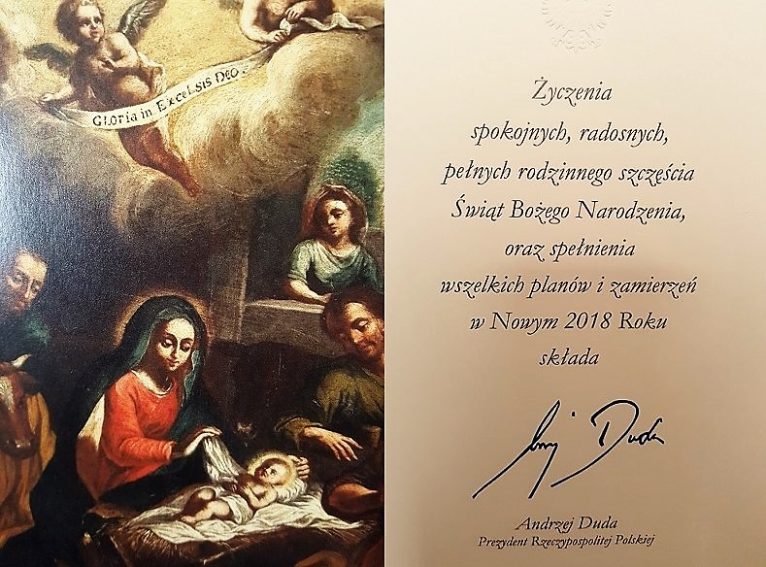 GLORIA IN EXCELSIS DEO
Życzenia
spokojnych, radosnych,
pełnych rodzinnego szczęścia
Świąt Bożego Narodzenia,
oraz spełnienia
wszelkich planów i zamierzeń
w Nowym 2018 Roku
składa
Duda
Andrzej Duda
Prezydent Rzeczypospolitej Polskiej